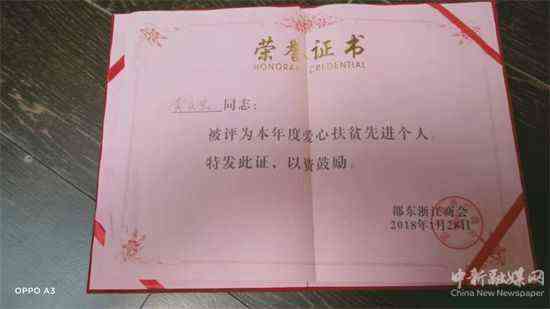 荣誉证书
HONORARY CREDENTIAL
同志:
被评为本年度爱心扶贫先进个人
特发此证，以资鼓励。
邵东浙江商会
2018年1月28日
OPPO A3
中新融媒网
China New Newspaper